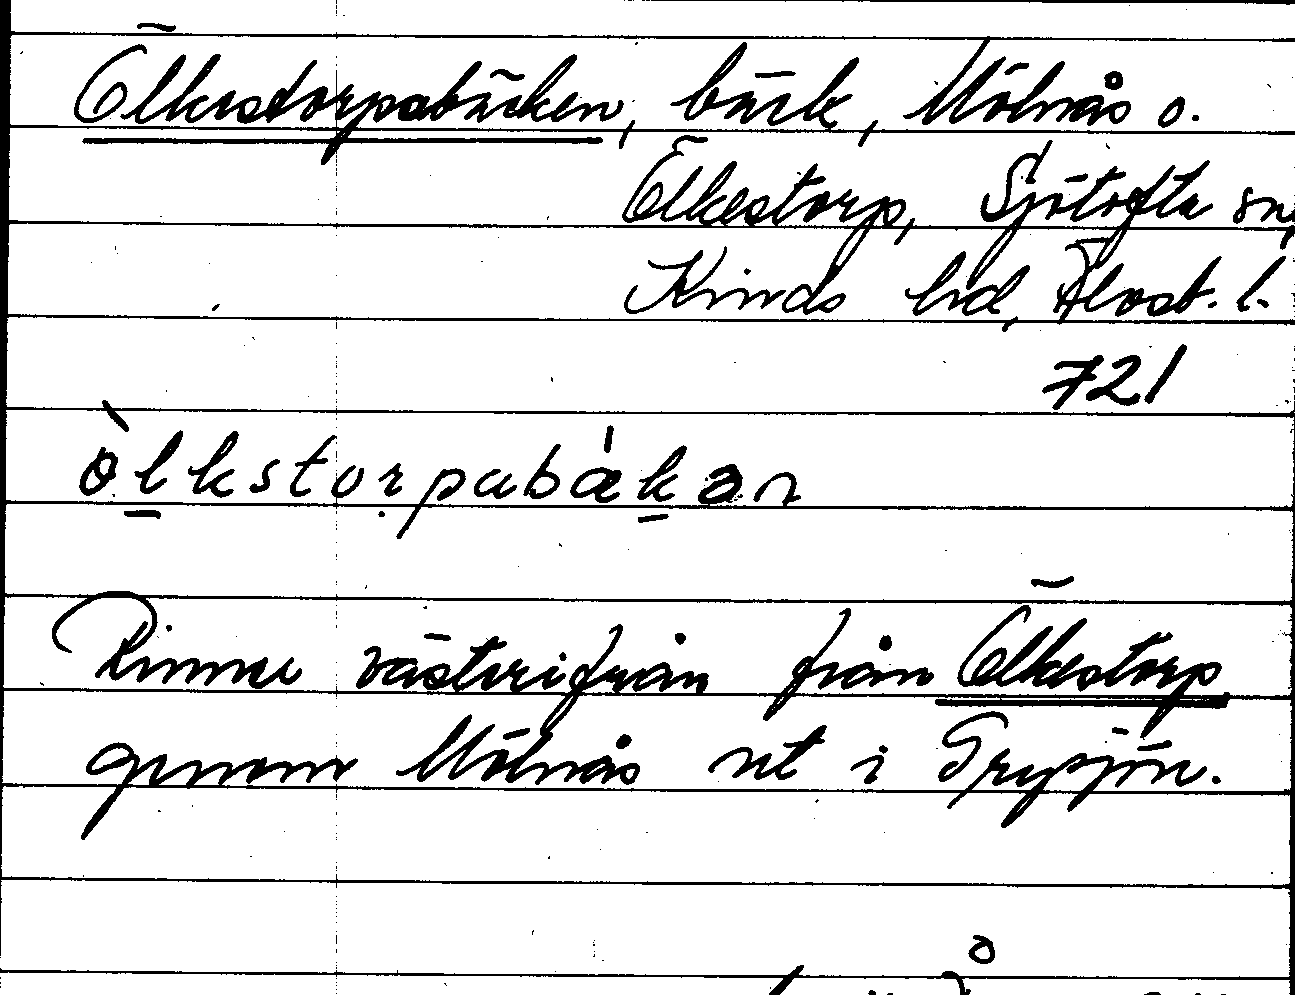 Ölkestorpabäcken, bäck, Mölnås o.
Ölkestorp, Sjötofta sn,
Kinds hd, Älvsb. l.
721
ö̀lkstorpabǽkən
Rinner västerifrån från Ölkestorp
genom Mölnås ut i Grysjön.